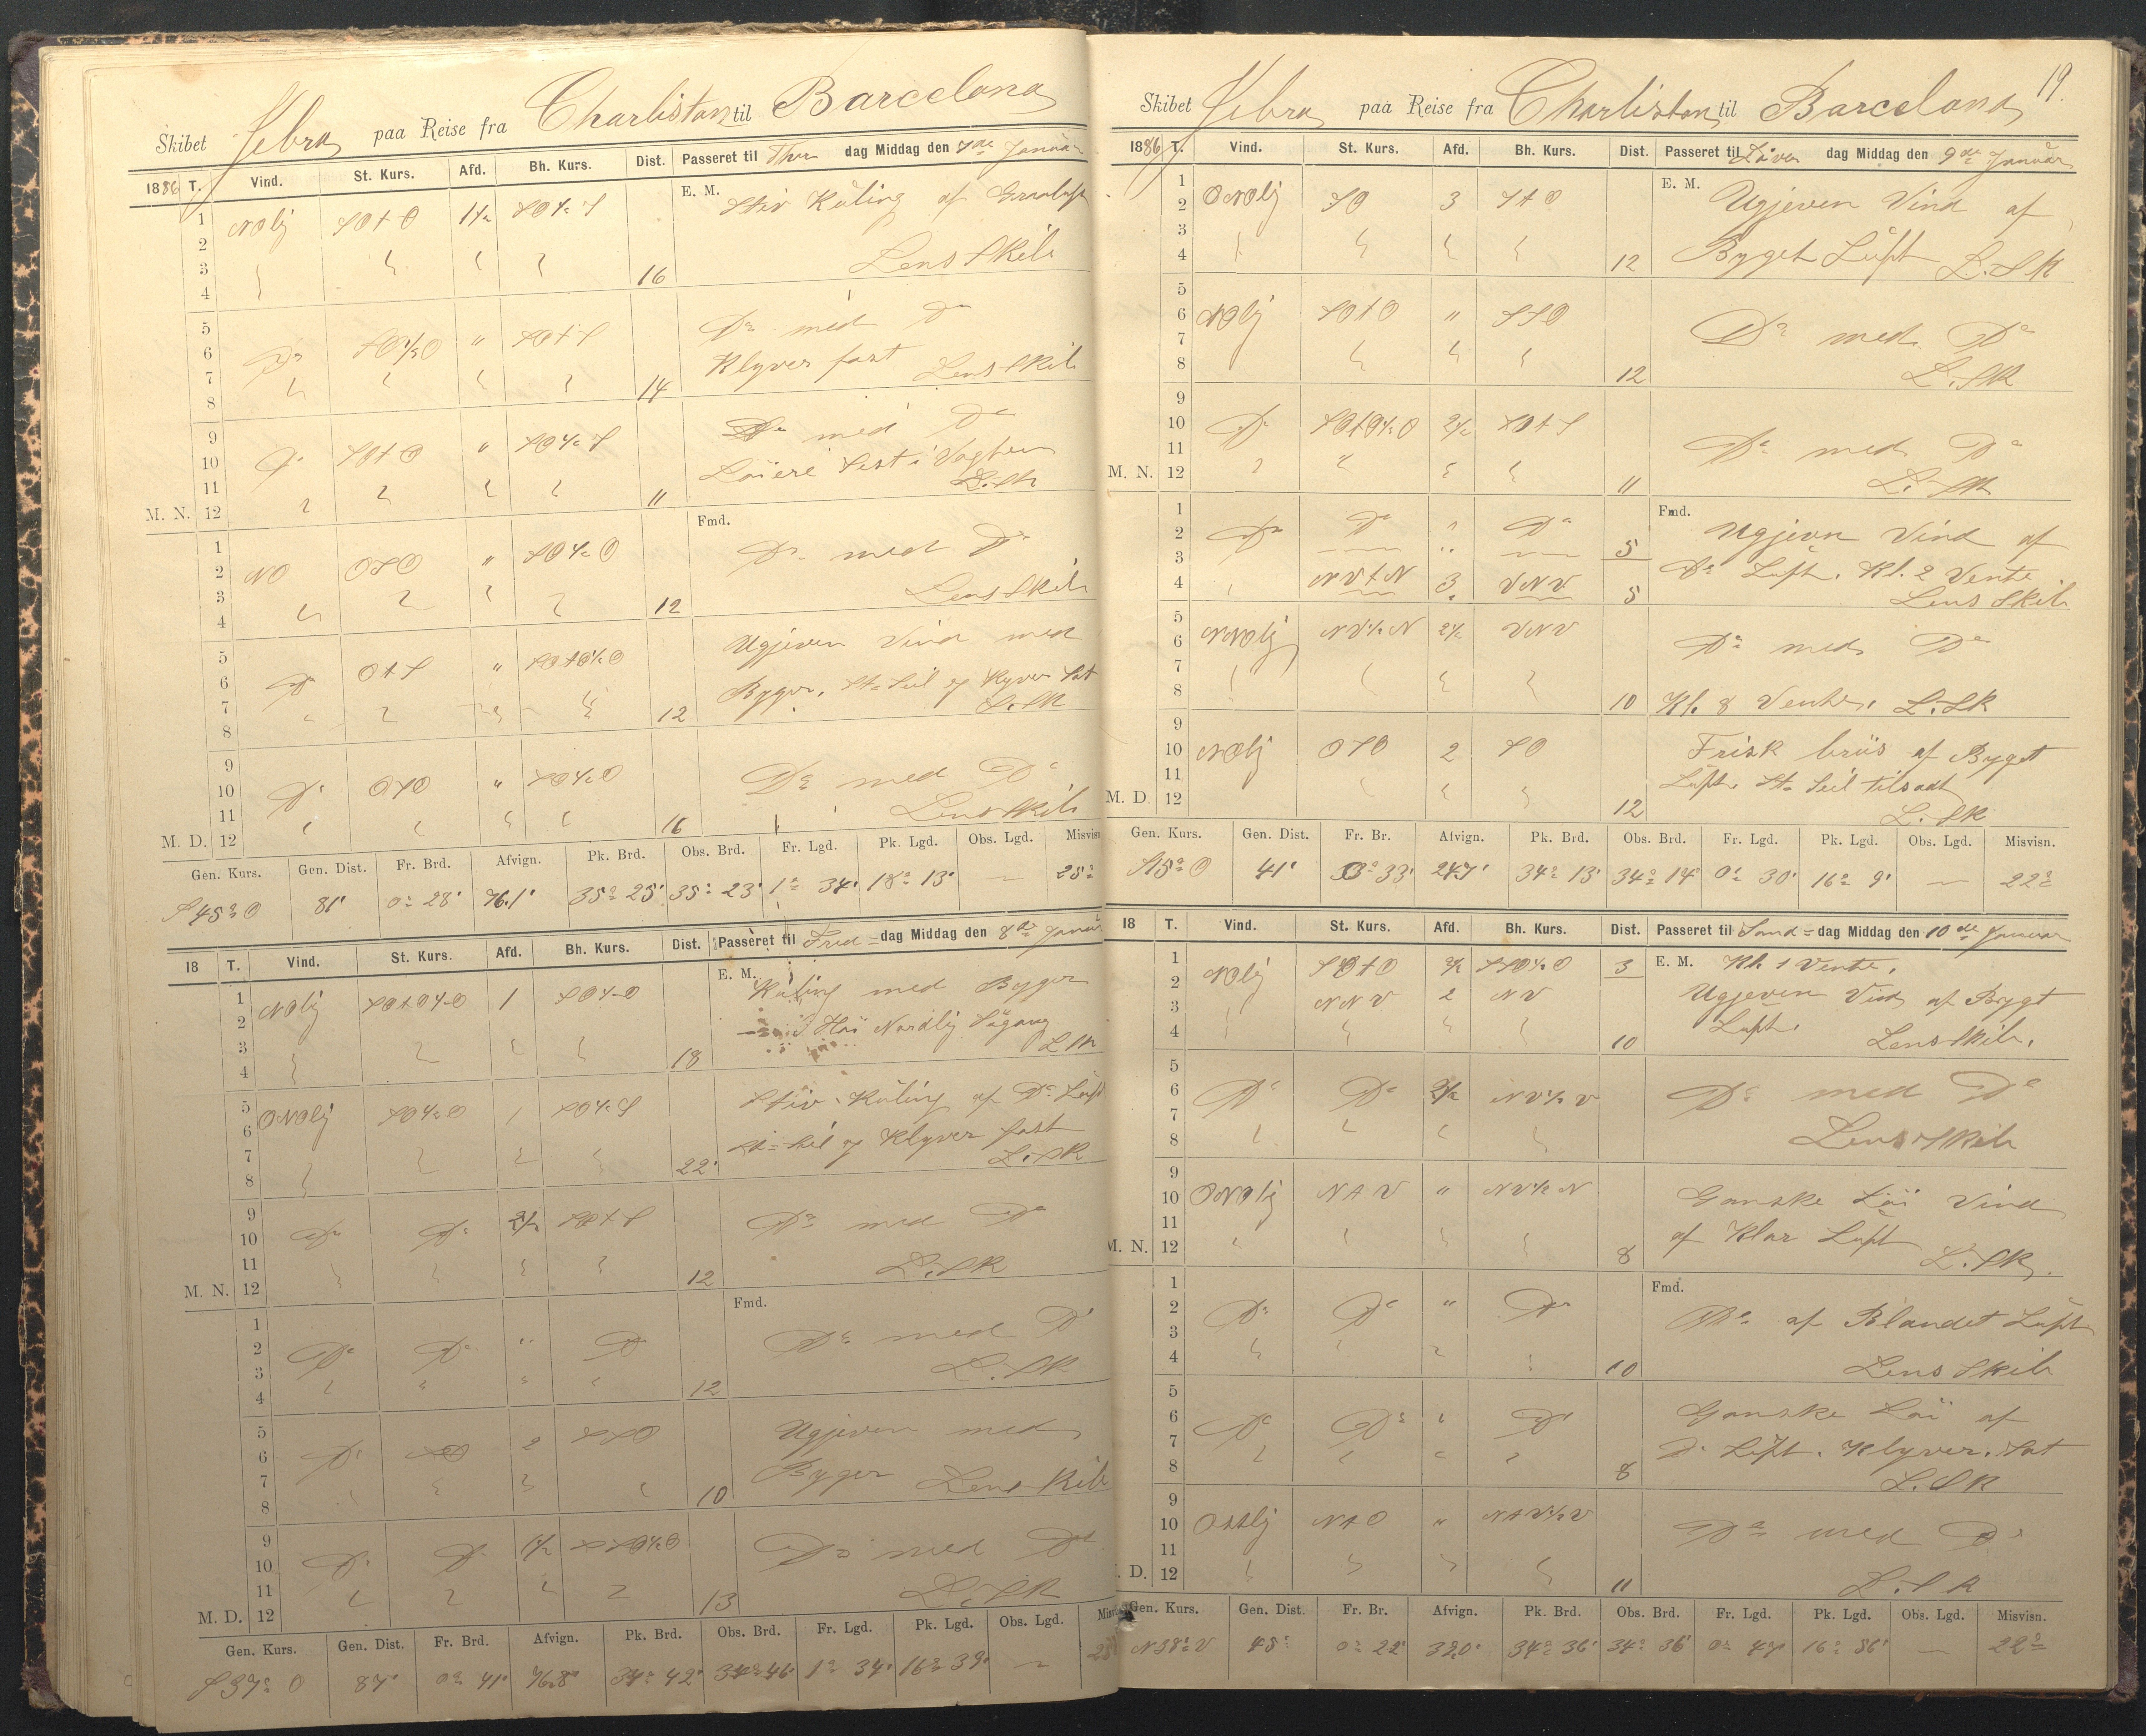 Skibet Jebra paa Reise fra Charliston til Barcelona
1886 T. Vind. St. Kurs. Afd. Bh. Kurs. Dist. Passeret til Thors dag Middag den 7de Januar
E. M.
1 2 3 4 NOlj SOtO 1½ SO½S 16 Stiv Küling af Graaluft
Lens Skib
5 6 7 8 Do SO½O " SOtS 14 Do med Do
Klyver fast Lens Skib
9 10 11 M. N. 12 Do SOtO " SO½S 11 Do med Do
L. Sk
Fmd.
1 2 3 4 NO OSO " SO½O 12 Do med Do
Lens Skib
5 6 7 8 Do OtS " SOtO½O 12 Ugjeven Vind med
Byger. St. Seil og Klyver Sat
L. SK
9 10 11 M. D. 12 Do OSO " SO½O 16 Do med Do
Lens Skib
Gen. Kurs. Gen. Dist. Fr. Brd. Afvign. Pk. Brd. Obs. Brd. Fr. Lgd. Pk. Lgd. Obs. Lgd. Misvisn
S 45° O 81' 0° 28' 76.1' 35° 25' 35° 23' 1° 34' 18° 13' — 25°
18 T. Vind. St. Kurs. Afd. Bh. Kurs. Dist. Passeret til Fred = dag Middag den 8de Januar
E. M.
1 2 3 4 NOlj SOtO½O 1 SO½O 18 Küling med Byger
Höi Nordlig Sögang
L SK
5 6 7 8 ONOlj SO½O 1 SO½S 22' Stiv Küling af Do Luft
St= Seil og Klyver fast
L. SK
9 10 11 M. N. 12 Do Do 2½ SOtS 12 Do med Do
L. SK
Fmd.
1 2 3 4 Do Do " Do 12 Do med Do
L. SK
5 6 7 8 Do SO 2 SSO 10 Ugjeven med
Byger Lens Skib
9 10 11 M. D. 12 Do Do 1½ 13 Do med Do
L. SK
Gen. Kurs. Gen. Dist. Fr. Brd. Afvign. Pk. Brd. Obs. Brd. Fr. Lgd. Pk. Lgd. Obs. Lgd. Misv
S 37° O 87' 0° 41' 76.8' 34° 42' 34° 46' 1° 34' 16° 39' —
19.
Skibet Jebra paa Reise fra Charliston til Barcelona
1886 T. Vind. St. Kurs. Afd. Bh. Kurs. Dist. Passeret til Löver dag Middag den 9de Januar
E. M.
1 2 3 4 ONOlj SO 3 StO 12 Ugjeven Vind af
Byget Lüft L. SK
5 6 7 8 NOlj SOtO " SSO 12 Do med Do
L. SK
9 10 11 M. N. 12 Do SOtO½O 2½ SOtS 11 Do med Do
L. SK
Fmd.
1 2 Do Do " Do 5 Ugjeven Vind af
3 4 NVtN 3 VNV 5 Do Luft. Kl. 2 Vente
Lens Skib
5 6 7 8 NNOlj NV½N 2½ VNV 10 Do med Do
Kl. 8 Vente. L. SK
9 10 11 M. D. 12 NOlj OSO 2 SO 12 Frisk briis af Byget
Lüft. St= Seil tilsadt
L. SK
Gen. Kurs. Gen. Dist. Fr. Br. Afvign. Pk. Brd. Obs. Brd. Fr. Lgd. Pk. Lgd. Obs. Lgd. Misvisn.
41' 33' 24.7' 34° 13' 34° 14' 0° 30' 16° 9' — 22°
18 T. Vind. St. Kurs. Afd. Bh. Kurs. Dist. Passeret til Sönd = dag Middag den 10de Januar
1 NOlj SOtO 2½ SSO½O 3 E. M. Kl. 1 Vente.
2 3 4 NNV 2 NV 10 Ugjeven Vind af Bygt
Luft. Lens Skib.
5 6 7 8 Do Do 2½ NV½V Do med Do
Lens Skib
9 10 11 M. N. 12 ONOlj NtV " NV½N 8 Ganske Löi Vind
af Klar Luft
L. SK.
Fmd.
1 2 3 4 Do Do " Do 10 Do af Blandet Lüft
Lens Skib
5 6 7 8 Do Do " Do 8 Ganske Löi af
Do Lüft. Klyver. Sat
L. SK
9 10 11 D. 12 Ostlj NtO " NtV½V 11 Do med Do
L. SK
Gen. Kurs. Gen. Dist. Fr. Br. Afvign. Pk. Brd. Obs. Brd. Fr. Lgd. Pk. Lgd. Obs. Lgd. Misvisn.
N 38° V 48' 0° 22' 32.0' 34° 36' 34° 36' 0° 47' 16° 56' — 22°